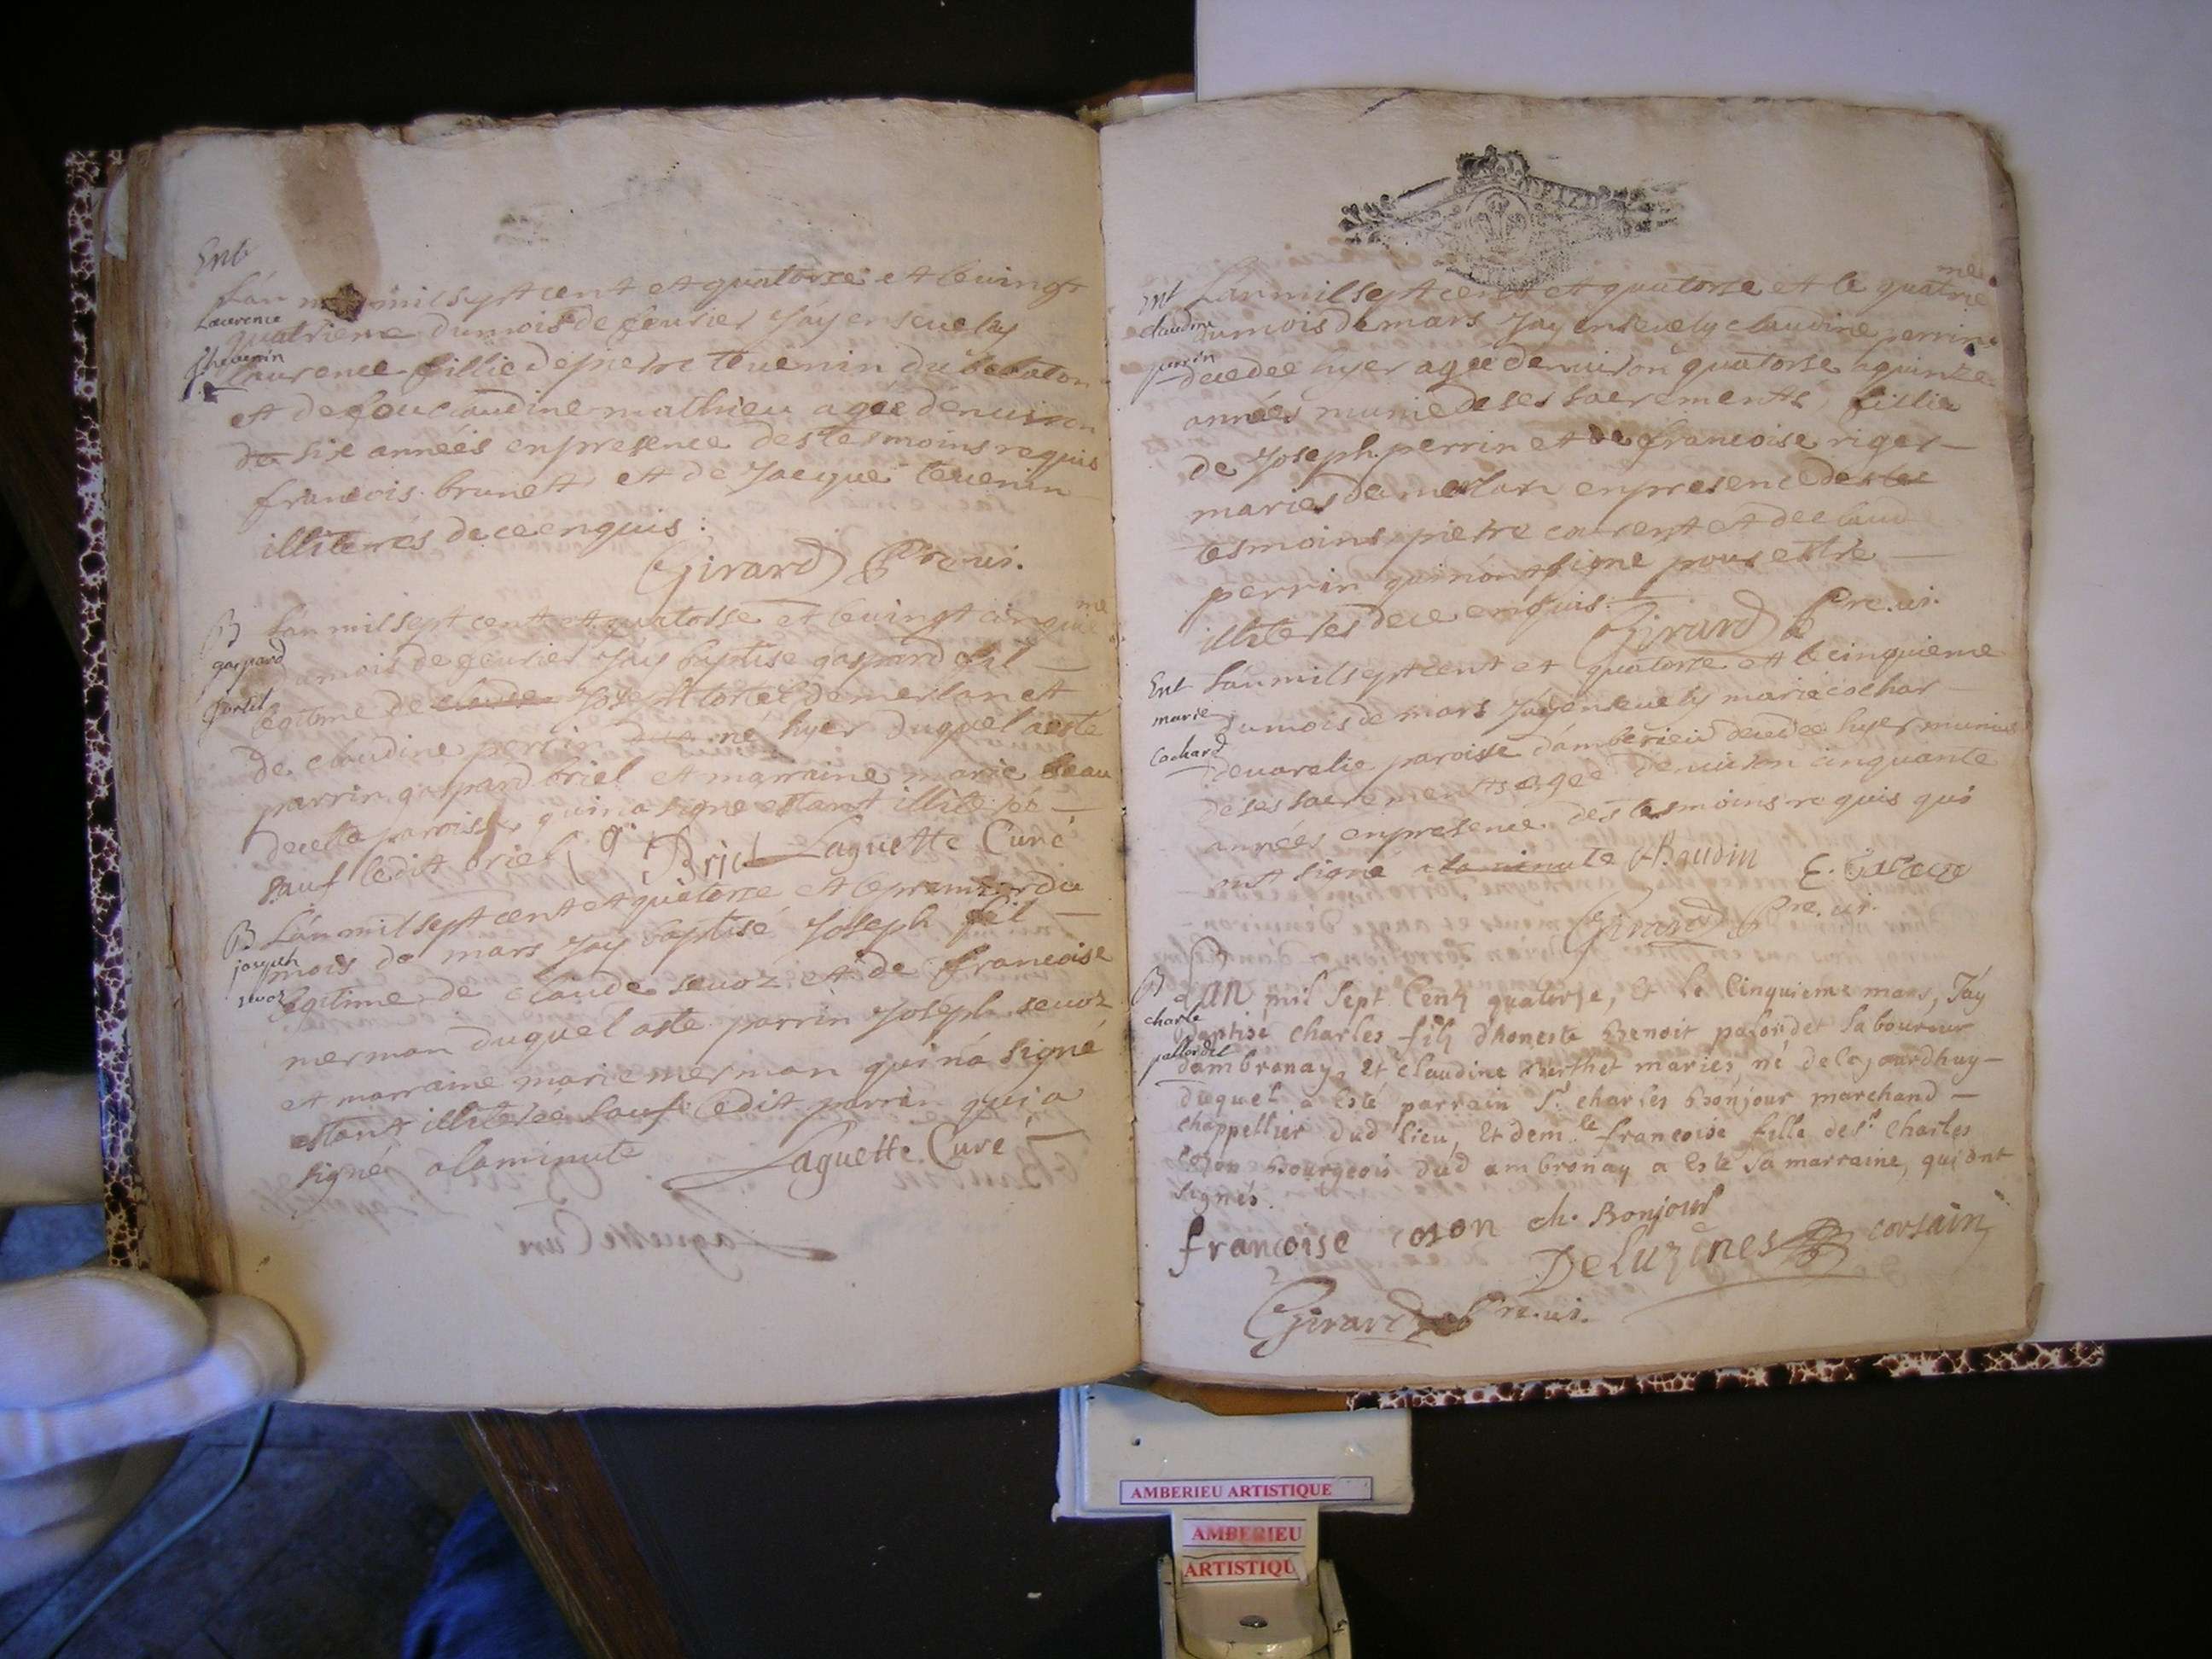 Ent
Laurence
thevenin
L'an mil sept cent et quatorse et le vingt
quatrieme du mois de feurier Jay enseuely
Laurence fillie de pierre teuenin du
et de fou claudine mathieu agée denuiron
de six années en presence des tesmoins requis
francois brunet et de Jacque teuenin
illiterés de ce enquis :
Girard Pre ui.
B
gaspard
tortel
L'an mil sept cent et quatosse et le vingt cinquieme
du mois de feurier Jay baptise gaspard fil
legitime de claude Joseph tortel de merlan et
de claudine perrin né hyer duquel a este
parrin gaspard briel et marraine marie beau
de cette paroisse, qui n'a signe estant illiteré
sauf ledit briel g Briel Laguette Curé
B
joseph
seuoz
L'an mil sept cent et quatorse et le premier du
mois de mars Jay baptisé Joseph fil
legitime de claude seuoz et de francoise
merman duquel a este parrin Joseph seuoz
et marraine marie merman qui n'a signé
estant illiterée sauf ledit parrin qui a
signé a la minute Laguette Curé
Ent
claudine
perrin
L'an mil sept cent et quatorse et le quatrieme
du mois de mars Jay enseuely claudine perrin
decedee hyer agee denuiron quatorse a quinze
années munie de ses sacrements, fillie
de Joseph perrin et de francoise riger
maries de merlan en presence des
tesmoins pierre courent et de claud
perrin qui n'ont signe pour estre
illiterés de ce enquis : Girard Pre. ui.
Ent
marie
Cochard
L'an mil sept cent et quatorse et le cinquieme
du mois de mars Jay enseuely marie cochar
de uarelie paroisse d'amberieu decedee hyer munie
de ses sacrements agee denuiron cinquante
années en presence des tesmoins requis qui
ont signé a la minute Baudin
Girard Pre. ui.
B
charle
pallordet
L'an mil sept Cent quatorse, et le Cinquieme mars, J'ay
Baptisé charles fils d'honeste Benoit palordet laboureur
dambronay, et claudine maries, né dela jourdhuy
duquel a esté parrain Sr. charles Bonjour marchand
chappellier dud lieu, et demle francoise fille de Sr. Charles
Coson Bourgeois dud ambronay a esté sa marraine, qui ont
signés.
francoise coson ch. Bonjour
Deluzines corsain
Girard Pre. ui.
AMBERIEU ARTISTIQUE
AMBERIEU
ARTISTIQU